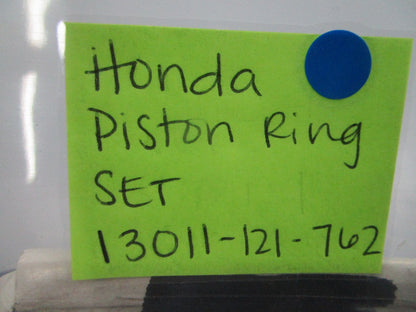 Honda
Piston Ring
SET
13011-121-762